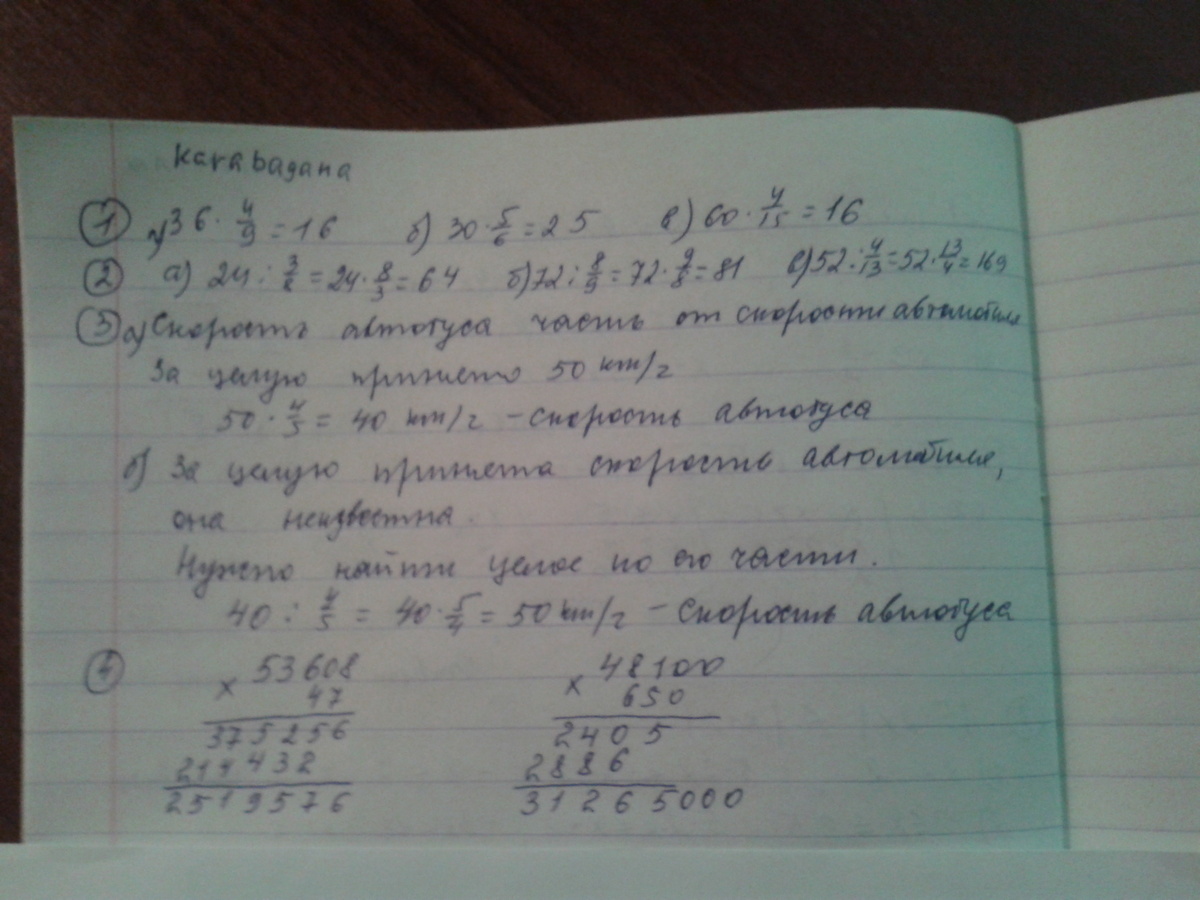 Karabagana
① а) 36 · 4/9 = 16 б) 30 · 5/6 = 25 в) 60 · 4/15 = 16
② а) 24 : 3/8 = 24 · 8/3 = 64 б) 72 : 8/9 = 72 · 9/8 = 81 в) 52 : 4/13 = 52 · 13/4 = 169
③ а) Скорость автобуса часть от скорости автомобиля
За целую принято 50 km/г
50 · 4/5 = 40 km/г – скорость автобуса
б) За целую принята скорость автомобиля,
она неизвестна.
Нужно найти целое по его части.
40 : 4/5 = 40 · 5/4 = 50 km/г – скорость автобуса
④ × 53608 × 48100
47 650
375256 2405
214432 2886
2519576 31265000